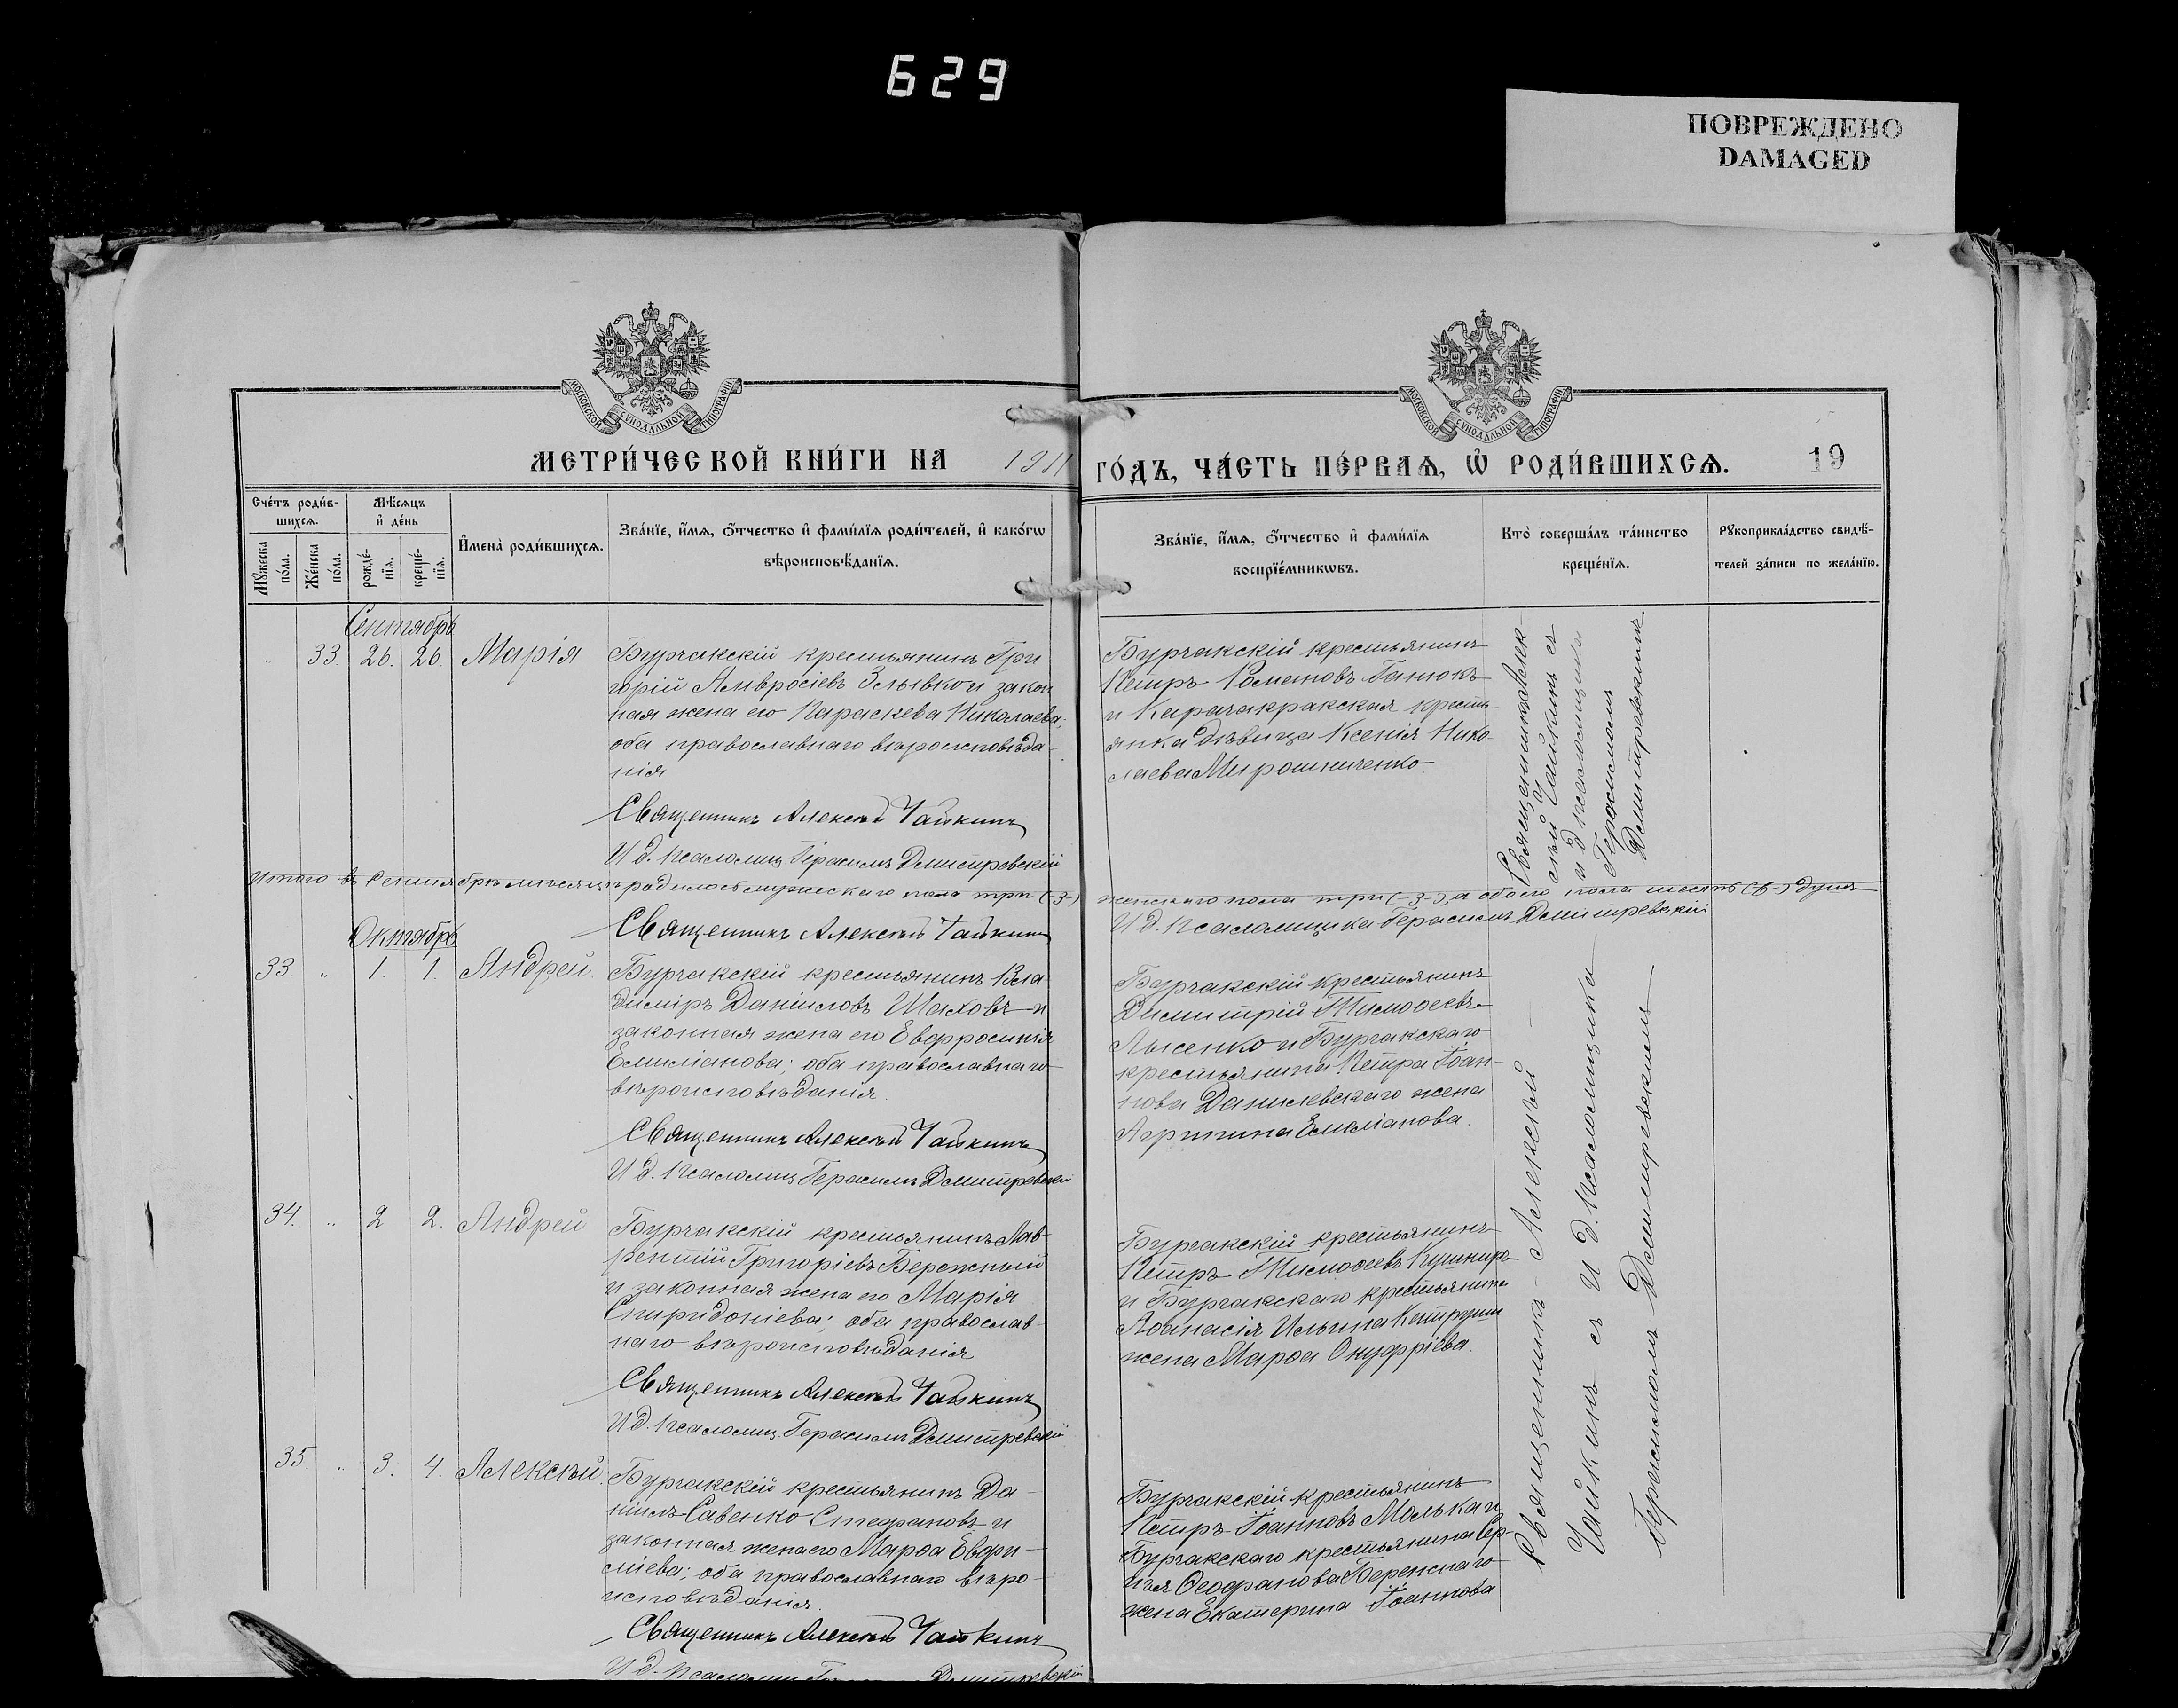 629
ПОВРЕЖДЕНО
DAMAGED
МОСКОВСКОЙ СУНОДАЛЬНОЙ ТИПОГРАФІИ
МОСКОВСКОЙ СУНОДАЛЬНОЙ ТИПОГРАФІИ
МЕТРИ́ЧЕСКОЙ КНИ́ГИ НА 1911
ГО́ДЪ, ЧА́СТЬ ПЕ́РВАѦ, Ѡ҆ РОДИ́ВШИХСѦ.
19
Сче́тъ роди́в-
шихсѧ.
Мѣ́сѧцъ
и҆ де́нь
Мꙋ́жеска по́ла.
Же́нска по́ла.
рожде́-
нїѧ.
креще́-
нїѧ.
И҆мена̀ роди́вшихсѧ.
Зва́нїе, и҆́мѧ, ѻ҆́тчество и҆ фами́лїѧ роди́телей, и҆ како́гѡ
вѣроисповѣ́данїѧ.
Зва́нїе, и҆́мѧ, ѻ҆́тчество и҆ фами́лїѧ
воспрїе́мникѡвъ.
Кто̀ соверша́лъ та́инство
креще́нїѧ.
Рꙋкоприкла́дство свидѣ́-
телей за́писи по жела́нїю.
Сентябрь
33. 26. 26. Марія
Бурчакскій крестьянинъ Гри
горій Амвросіевъ Злывко и закон
ная жена его Параскева Николаева;
оба православнаго вѣроисповѣда-
нія
Священникъ Алексѣй Чайкинъ
И д. псаломщ Герасимъ Дмитревскій
Бурчакскій крестьянинъ
Петръ Романовъ Ганюкъ
и Карачакракская кресть-
янка дѣвица Ксенія Нико-
лаева Мирошниченко
Священникъ Алек-
сѣй Чайкинъ съ
и д псаломщика
Герасимомъ
Дмитревскимъ
Итого въ Сентябрѣ мѣсяцѣ родилось мужескаго пола три (3)
женскаго пола три (3), а обоего пола шесть (6) душъ
Священникъ Алексѣй Чайкинъ
И д. псаломщика Герасимъ Дмитревскій
Октябрь
33. „ 1. 1. Андрей
Бурчакскій крестьянинъ Вла
диміръ Даніиловъ Шаховъ и
законная жена его Евфросинія
Емиліанова; оба православнаго
вѣроисповѣданія.
Священникъ Алексѣй Чайкинъ
И д. псаломщ Герасимъ Дмитревскій
Бурчакскій крестьянинъ
Димитрій Тимоѳеевъ
Лысенко и Бурчакскаго
крестьянина Петра Іоан-
нова Данилевскаго жена
Агрипина Емиліанова.
34. „ 2 2. Андрей
Бурчакскій крестьянинъ Лав-
рентій Григоріевъ Бережный
и законная жена его Марія
Спиридоніева; оба православ-
наго вѣроисповѣданія
Священникъ Алексѣй Чайкинъ
И д. псаломщ. Герасимъ Дмитревскій
Бурчакскій крестьянинъ
Петръ Тимоѳеевъ Кушниръ
и Бурчакскаго крестьянина
Аѳанасія Ильина
жена Марѳа Онуфріева.
35. „ 3. 4. Алексѣй.
Бурчакскій крестьянинъ Да-
ніилъ Савенко Стефановъ и
законная жена его Марѳа Евѳи-
міева; оба православнаго вѣро-
исповѣданія.
Священникъ Алексѣй Чайкинъ
И д. псаломщ Дмитревскій
Бурчакскій крестьянинъ
Петръ Іоанновъ Малька и
Бурчакскаго крестьянина Сер-
гѣя Ѳеофанова
жена Екатерина Іоаннова
Священникъ Алексѣй
Чайкинъ съ И д. псаломщика
Герасимомъ Дмитревскимъ